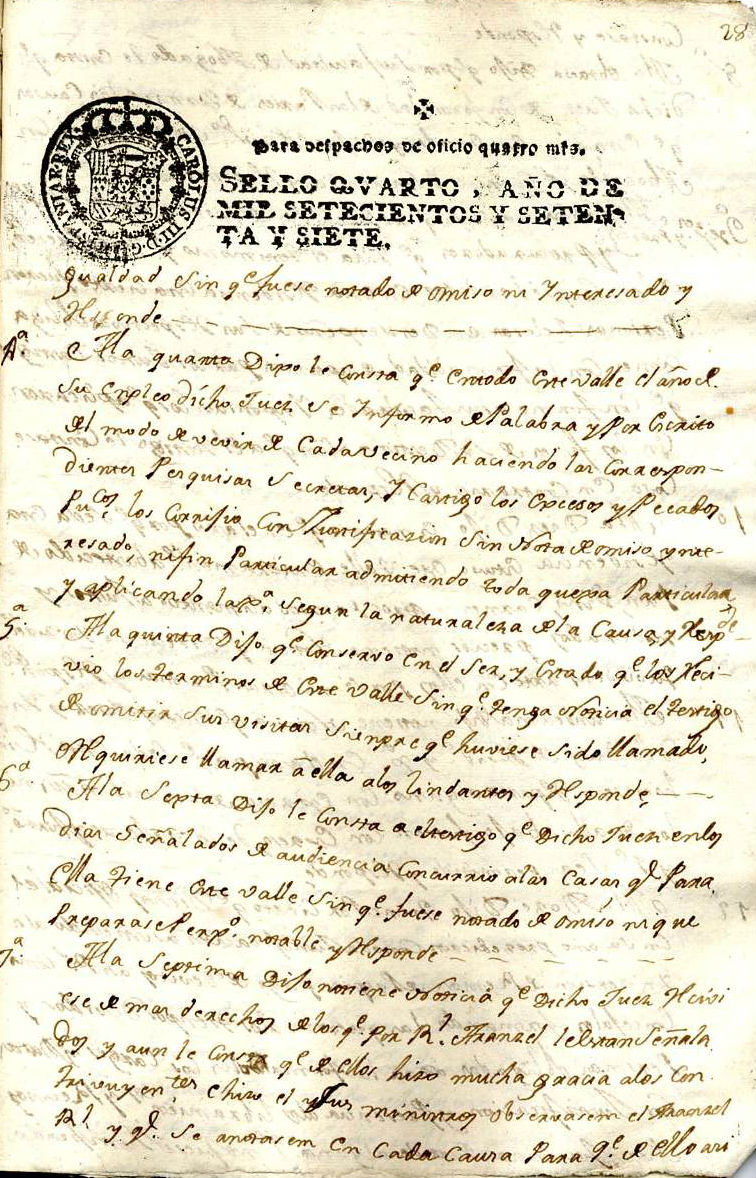 28
CAROLUS III D. G. HISPANIAR. REX
Para despachos de oficio quatro mrs.
SELLO QVARTO, AÑO DE
MIL SETECIENTOS Y SETEN-
TA Y SIETE.
gualdad sin qe. fuese notado de omiso ni Interesado y
Responde
4a. A la quarta Dijo le Consta qe. en todo este Valle el año de
su empleo dicho Juez se Informo de Palabra y por escrito
del modo de vevir de Cada vecino haciendo las Correspon-
dientes Pesquisas Secretas, y Castigo los excesos y Pecados
Pucos. los Corrijio Con Justificazion sin nota de omiso ynte-
resado, ni fin Particular admitiendo toda quexa Particular
y aplicando la pa. segun la naturaleza de la Causa, y Respde
5a. A la quinta Dijo qe. Conservo en el ser, y estado qe. los Reci-
vio los terminos de este Valle sin qe. tenga noticia el testigo
de omitir sus visitas sienpre qe. huviese sido llamado,
Riquiriese llamar à ella a los lindantes y Responde
6a. A la Septa Dijo le Consta a el testigo qe. Dicho Juez en los
dias Señalados de audiencia Concurrio a las Casas qe. Para
ella tiene este Valle sin qe. fuese notado de omiso ni que
Preparase Perxo. notable y Responde
7a. A la Septima Dijo no tiene noticia qe. Dicho Juez Recivi
ese de mas derechos de los qe. por Rl. Aranzel le estan Señala
dos y aun le Consta qe. de ellos hizo mucha gracia a los Con
trivuyentes e hizo el y sus ministros observasem el Aranzel
Rl. y qe. se anotasem en Cada Causa Para qe. de ello asi